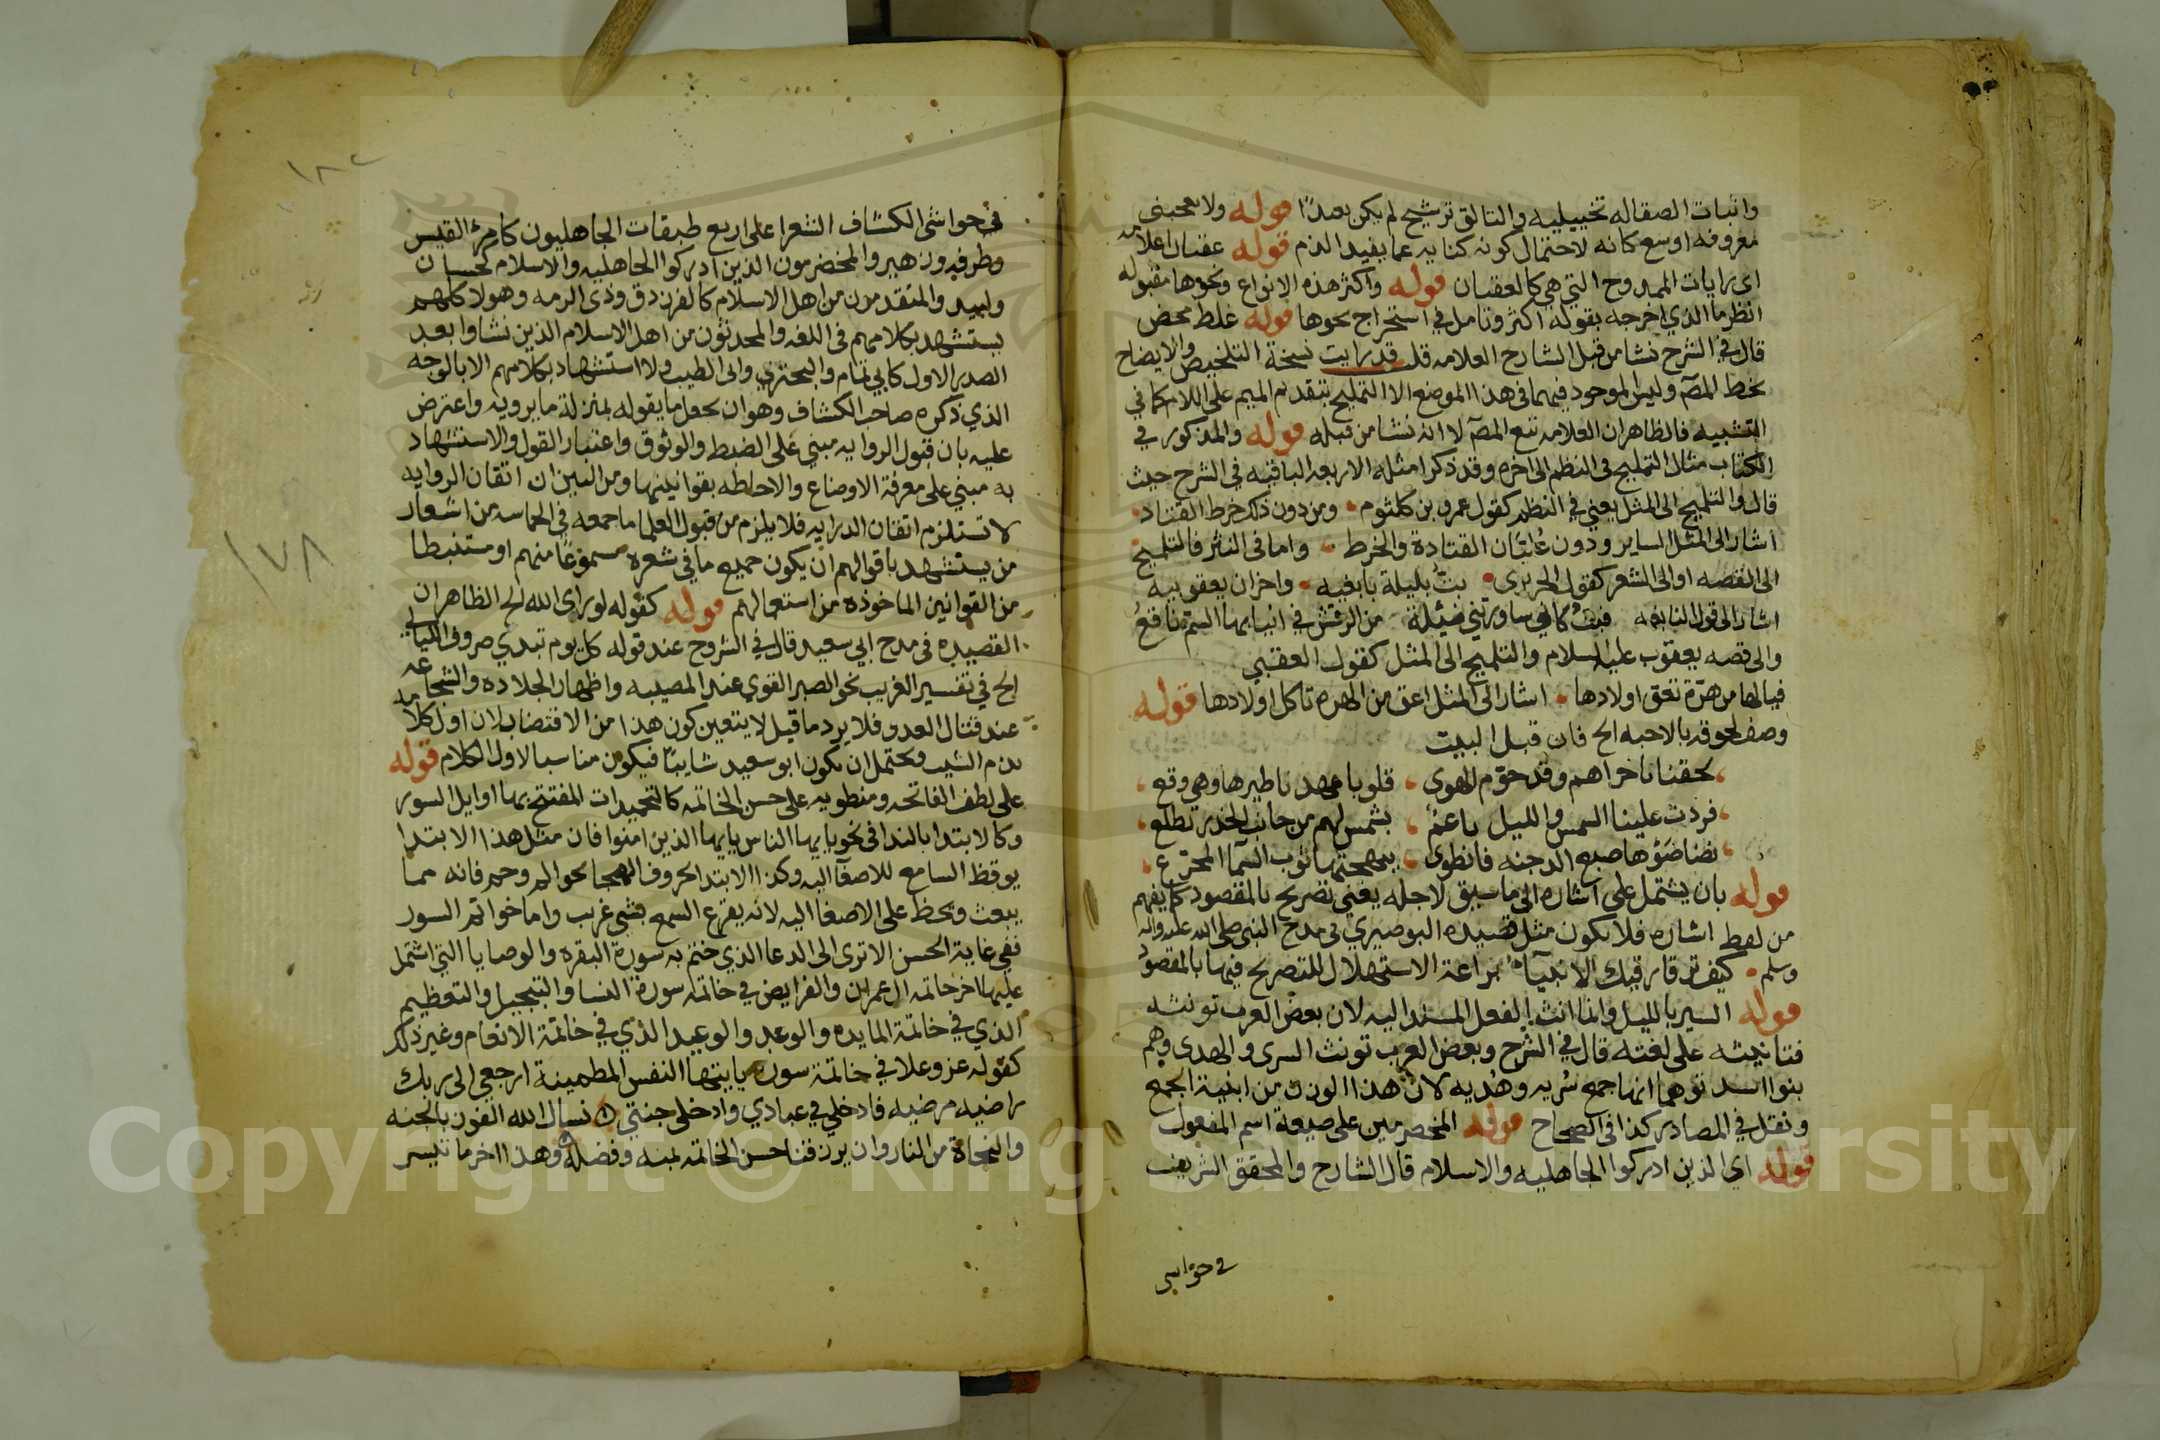 واثبات الصقاله تخييليه والتالق ترشيح لم يكن بعيدًا قوله ولا يعجبني
معروفه اوسع كانه لاحتمال كونه كناية عما يفيد الذم قوله عقبان اعلامه
اى رايات الممدوح التي هي كالعقبان قوله واكثر هذه الانواع ونحوها مقبوله
انظر ما الذي اخرجه بقوله اكثر وتامل في استخراج نحوها قوله غلط محض
قال في الشرح نشا من قبل الشارح العلامه قلت قد رايت نسخة التلخيص والايضاح
بخط المصَ وليس الموجود فيهما في هذا الموضع الا التمليح بتقديم الميم على اللام كما في
التشبيه فالظاهر ان العلامه تبع المصَ لا انه نشا من قبله قوله والمذكور في
الكتاب مثال التمليح في النظم الى اخره وقد ذكر امثله الاربعه الباقيه في الشرح حيث
قال والتلميح الى المثل يعني في النظم كقول عمرو بن كلثوم ومن دون ذلك خرط القتاد
اشار الى المثل الساير ودون عُليَّان القتادة والخرط واما في النثر فالتلميح
الى القصه او الى الشعر كقول الحريرى بتُ بليلة نابغيه واحزان يعقوبيه
اشار الى قول النابغه فبتُ كاني ساورتني ضئيلة من الرقش في انيابها السم ناقعُ
والى قصه يعقوب عليه السلام والتلميح الى المثل كقول العقبي
فيالها من هرّة تعق اولادها اشار الى المثل اعق من الهره تاكل اولادها قوله
وصف لحوقه بالاحبه الخ فان قبل البيت
لحقنا باخراهم وقد حوّم الهوى قلوبا عهدنا طيرها وهي وقع
فردت علينا الشمس والليل راغم بشمس لهم من جانب الخدر تطلع
نضا ضوُها صبع الدجنه فانطوى ببهجتها ثوب السما المجزع
قوله بان يشتمل على اشاره الى ما سيق لاجله يعني تصريح بالمقصود كما يفهم
من لفظ اشاره فلا يكون مثل قصيده البوصيري في مدح النبي صلى الله عليه واله
وسلم كيف ترقا رقيك الانبيآءُ براعة الاستهلال للتصريح فيها بالمقصود
قوله السير بالليل وانما انث الفعل المسند اليه لان بعض العرب تونثه
فتانيثه على لغته قال في الشرح وبعض العرب تونث السرى والهدى وهم
بنوا اسد توهما انها جمع سُريه وهُديه لان هذا الوزن من ابنية الجمع
ونقل في المصادر كذا في الصحاح قوله المخضرمين على صيغة اسم المفعول
قوله اي الذين ادركوا الجاهليه والاسلام قال الشارح والمحقق الشريف
في حواشي
١٨٢
١٧٨
في حواشى الكشاف الشعرا على اربع طبقات الجاهليون كامرئ القيس
وطرفه وزهير والمخضرمون الذين ادركوا الجاهليه والاسلام كحسان
ولبيد والمتقدمون من اهل الاسلام كالفرزدق وذى الرمه وهولا كلهم
يستشهد بكلامهم في اللغه والمحدثون من اهل الاسلام الذين نشاوا بعد
الصدر الاول كابي تمام والبحترى وابى الطيب ولا استشهاد بكلامهم الا بالوجه
الذي ذكره صاحب الكشاف وهو ان يجعل ما يقوله بمنزلة ما يرويه واعترض
عليه بان قبول الروايه مبني على الضبط والوثوق واعتبار القول والاستشهاد
به مبني على معرفة الاوضاع والاحاطه بقوانينها ومن البين ان اتقان الروايه
لا تستلزم اتقان الدرايه فلا يلزم من قبول العلما ما جمعه في الحماسه من اشعار
من يستشهد باقوالهم ان يكون جميع ما في شعره مسموعًا منهم او مستنبطا
من القوانين الماخوذه من استعمالهم قوله كقوله لو راى الله الخ الظاهر ان
القصيده في مدح ابي سعيد قال في الشروح عند قوله كل يوم تبدي صروف الليالي
الخ في تفسير الغريب نحو الصبر القوي عند المصيبه واظهار الجلاده والشجاعه
عند قتال العدو فلا يرد ما قيل لا يتعين كون هذا من الاقتضاب لان اول كلامه
بذم الشيب ويحتمل ان يكون ابو سعيد شايبًا فيكون مناسبا لاول الكلام قوله
على لطف الفاتحه ومنطويه على حسن الخاتمه كالتحميدات المفتتح بها اوايل السور
وكالابتدا بالندا في نحو يايها الناس يايها الذين امنوا فان مثل هذا الابتدا
يوقظ السامع للاصغآ اليه وكذا الابتدا بحروف الهجا نحو الم وحم فانه مما
يبعث ويحظ على الاصغا اليه لانه يقرع السمع بشي غريب واما خواتم السور
ففي غاية الحسن الا ترى الى الدعا الذي ختم به سورة البقره والوصايا التي اشتمل
عليها اخر خاتمه ال عمران والفرايض في خاتمه سورة النسا والتبجيل والتعظيم
الذي في خاتمة المايده والوعد والوعيد الذي في خاتمة الانعام وغير ذلك
كقوله عز وعلا في خاتمة سوره يايتها النفس المطمينة ارجعي الى ربك
راضيه مرضيه فادخلي في عبادي وادخلى جنتي نسال الله الفوز بالجنه
والنجاة من النار وان يرزقنا حسن الخاتمه بمنه وفضله وهذا اخر ما تيسر
Copyright © King Saud University